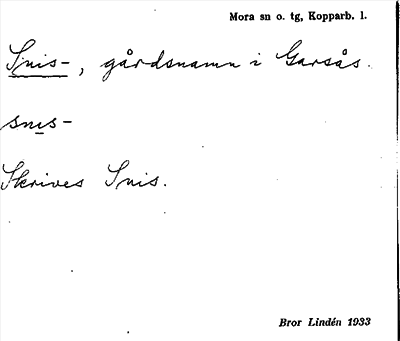 Mora sn o. tg, Kopparb. l.
Snis-, gårdsnamn i Garsås.
snɪs-
Skrives Snis.
Bror Lindén 1933